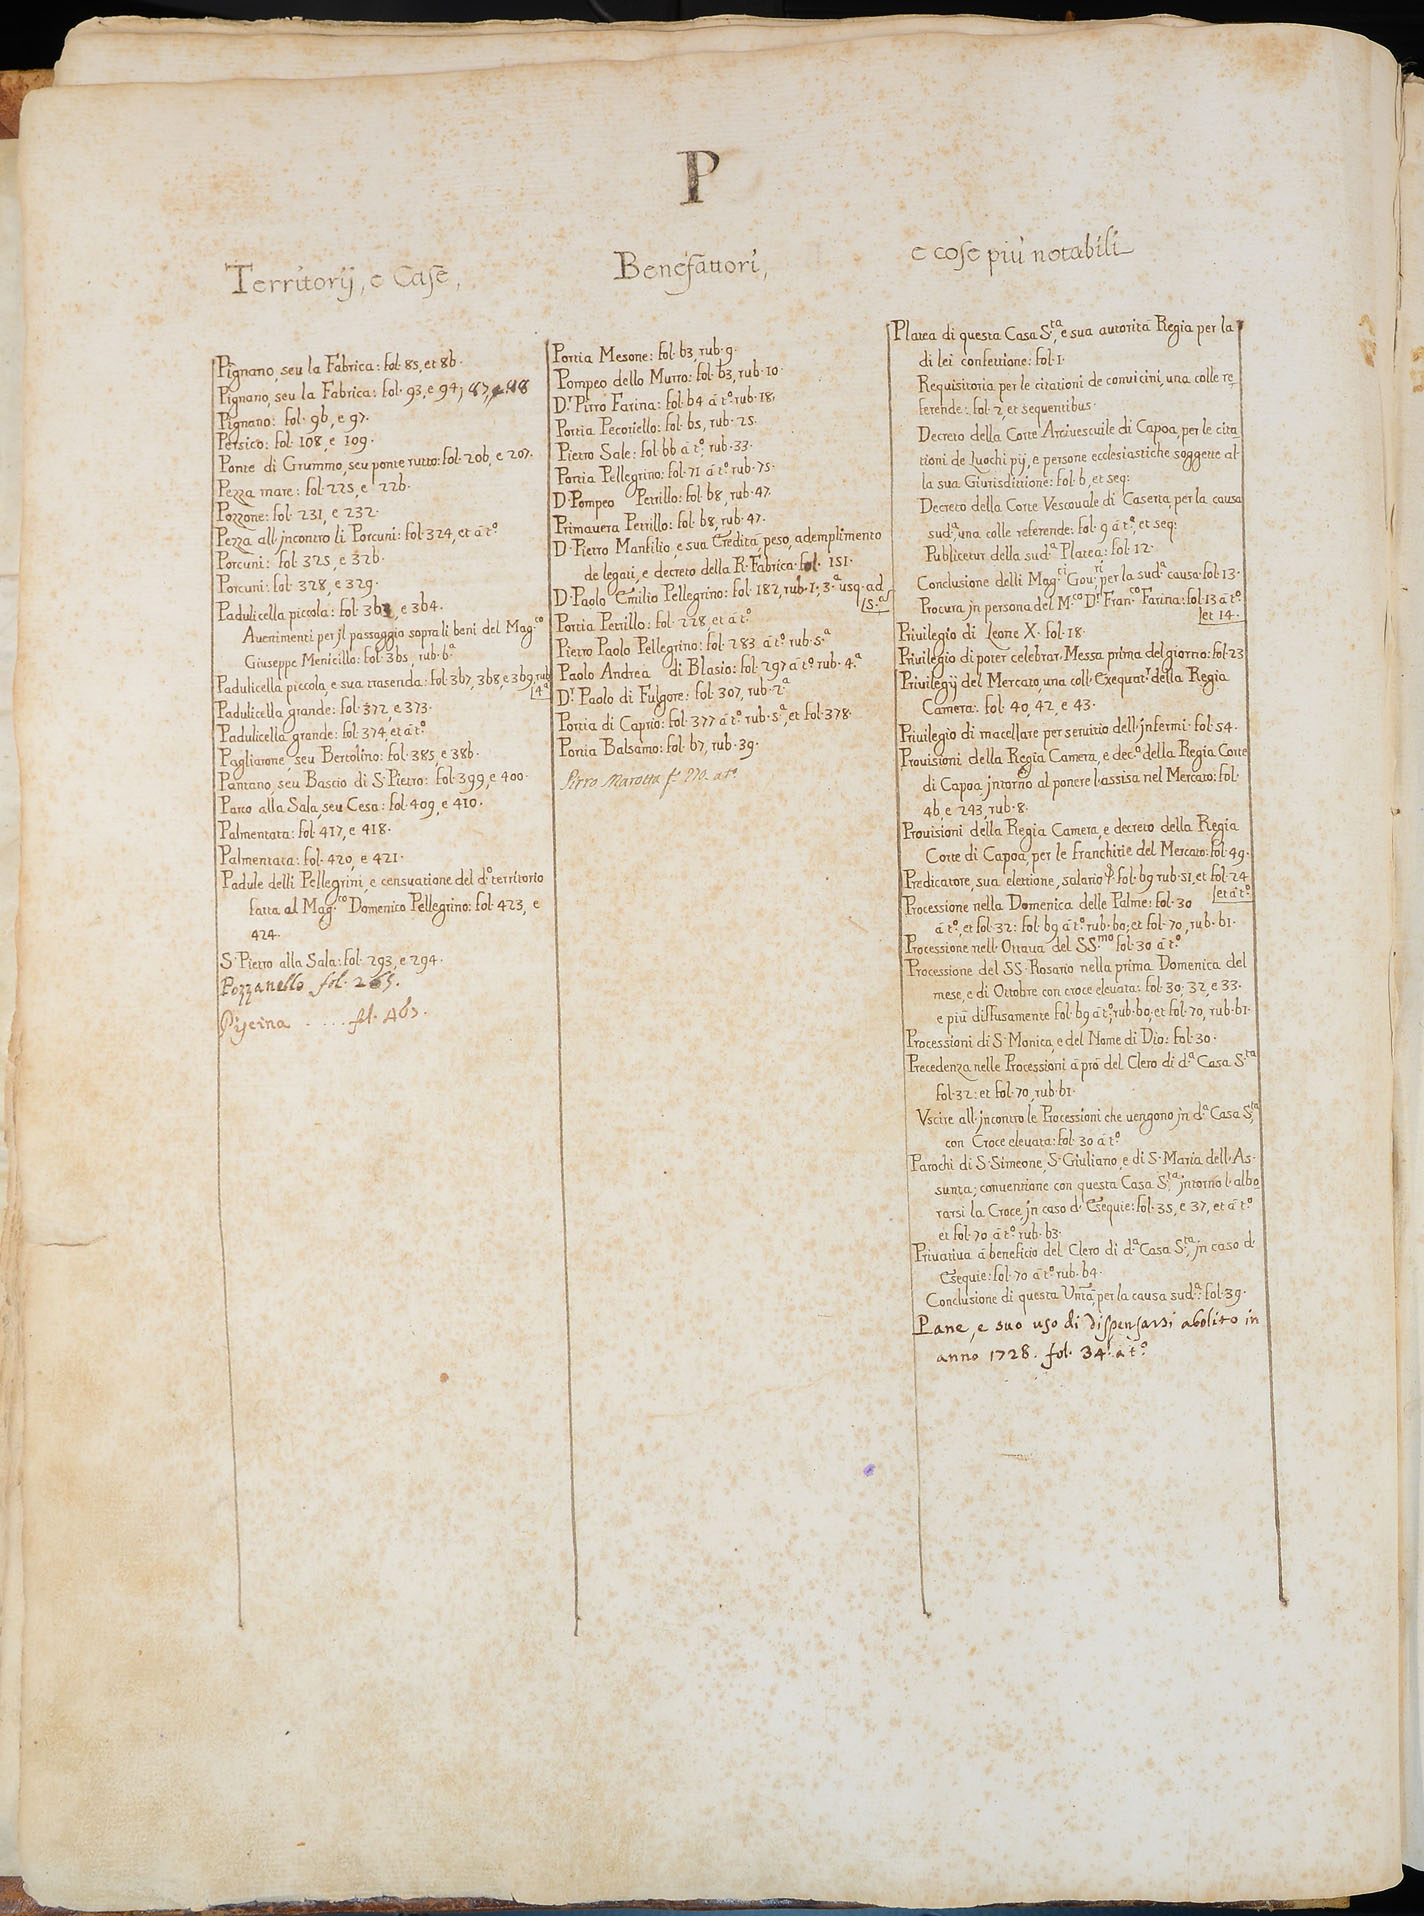 P
Territorij, e Case,
Pignano, seu la Fabrica: fol. 85, et 86.
Pignano, seu la Fabrica: fol. 93, e 94; 87,
Pignano: fol. 96, e 97.
Persico: fol. 108, e 109.
Ponte di Grummo, seu ponte rutto: fol. 206, e 207.
Pezza mare: fol. 225, e 226.
Pozzone: fol. 231, e 232.
Pezza all'jncontro li Porcuni: fol. 324, et à t.º
Porcuni: fol. 325, e 326.
Porcuni: fol. 328, e 329.
Padulicella piccola: fol. 363, e 364.
Auertimenti per jl passaggio sopra li beni del Mag.co
Giuseppe Menicillo: fol. 365, rub. 6.ª
Padulicella piccola, e sua trasenda: fol. 367, 368, e 369, rub.
4.ª
Padulicella grande: fol. 372, e 373.
Padulicella grande: fol. 374, et à t.º
Pagliarone, seu Bertolino: fol. 385, e 386.
Pantano, seu Bascio di S. Pietro: fol. 399, e 400.
Parco alla Sala, seu Cesa: fol. 409, e 410.
Palmentata: fol. 417, e 418.
Palmentata: fol. 420, e 421.
Padule delli Pellegrini, e censuatione del d.º territorio
fatta al Mag.co Domenico Pellegrino: fol. 423, e
424.
S. Pietro alla Sala: fol. 293, e 294.
Pozzanello fol. 265.
fol. 463.
Benefattori,
Portia Mesone: fol. 63, rub. 9.
Pompeo dello Murro: fol. 63, rub. 10.
D.r Pirro Farina: fol. 64 à t.º rub. 18.
Portia Pecoriello: fol. 65, rub. 25.
Pietro Sale: fol. 66 à t.º, rub. 33.
Portia Pellegrino: fol. 71 à t.º rub. 75.
D. Pompeo Petrillo: fol. 68, rub. 47.
Primauera Petrillo: fol. 68, rub. 47.
D. Pietro Manfilio, e sua Eredità, peso, ademplimento
de legati, e decreto della R. Fabrica. fol. 151.
D. Paolo Emilio Pellegrino: fol. 182, rub. 1; 3.ª usq. ad
15.ª
Portia Petrillo: fol. 228, et à t.º
Pietro Paolo Pellegrino: fol. 283 à t.º rub. 5.ª
Paolo Andrea di Blasio: fol. 297 à t.º rub. 4.ª
D.r Paolo di Fulgore: fol. 307, rub. 2.ª
Portia di Caprio: fol. 377 à t.º rub. 5.ª, et fol. 378.
Portia Balsamo: fol. 67, rub. 39.
Pirro Marotta f. 270. a t.º
e cose più notabili
Platea di questa Casa S.ta, e sua autorità Regia per la
di lei confettione: fol. 1.
Requisitoria per le citationi de conuicini, una colle re
ferende: fol. 2, et sequentibus.
Decreto della Corte Arciuescuile di Capoa, per le cita
tioni de Luochi pij, e persone ecclesiastiche soggette al
la sua Giurisdittione: fol. 6, et seq:
Decreto della Corte Vescouale di Caserta, per la causa
sud.ª, una colle referende: fol. 9 à t.º, et seq:
Publicetur della sud.ª Platea: fol. 12.
Conclusione delli Mag.ci Gou.ri, per la sud.ª causa. fol. 13.
Procura jn persona del M.co D.r Fran.co Farina: fol. 13 à t.º
et 14.
Priuilegio di Leone X. fol. 18.
Priuilegio di poter celebrar. Messa prima del giorno: fol. 23
Priuilegij del Mercato, una coll' Exequat.r della Regia
Camera: fol. 40, 42, e 43.
Priuilegio di macellare per seruitio dell'jnfermi. fol. 54.
Prouisioni della Regia Camera, e dec.º della Regia Corte
di Capoa, jntorno al ponere l'assisa nel Mercato: fol.
46, e 243, rub. 8.
Prouisioni della Regia Camera, e decreto della Regia
Corte di Capoa, per le franchitie del Mercato: fol. 49.
Predicatore, sua elettione, salario fol. 69 rub. 51, et fol. 24
et à t.º
Processione nella Domenica delle Palme: fol. 30
à t.º, et fol. 32: fol. 69 à t.º rub. 60; et fol. 70, rub. 61.
Processione nell'Ottaua del SS.mo fol. 30 à t.º
Processione del SS. Rosario nella prima Domenica del
mese, e di Ottobre con croce eleuata: fol. 30; 32, e 33.
e più diffusamente fol. 69 à t.º; rub. 60; et fol. 70, rub. 61.
Processioni di S. Monica, e del Nome di Dio: fol. 30.
Precedenza nelle Processioni à prò del Clero di d.ª Casa S.ta
fol. 32: et fol. 70, rub. 61.
Vscire all'jncontro le Processioni che uengono jn d.ª Casa S.ta
con Croce eleuata: fol. 30 à t.º
Parochi di S. Simeone, S. Giuliano, e di S. Maria dell'As-
sunta; conuentione con questa Casa S.ta, jntorno l'albo
rarsi la Croce, jn caso d' Esequie: fol. 35, e 37, et à t.º
et fol. 70 à t.º rub. 63.
Priuatiua à beneficio del Clero di d.ª Casa S.ta, jn caso d'
Esequie: fol. 70 à t.º rub. 64.
Conclusione di questa Vnt.à, per la causa sud.ª: fol. 39.
Pane, e suo uso di dispensarsi abolito in
anno 1728. fol. 34. à t.º